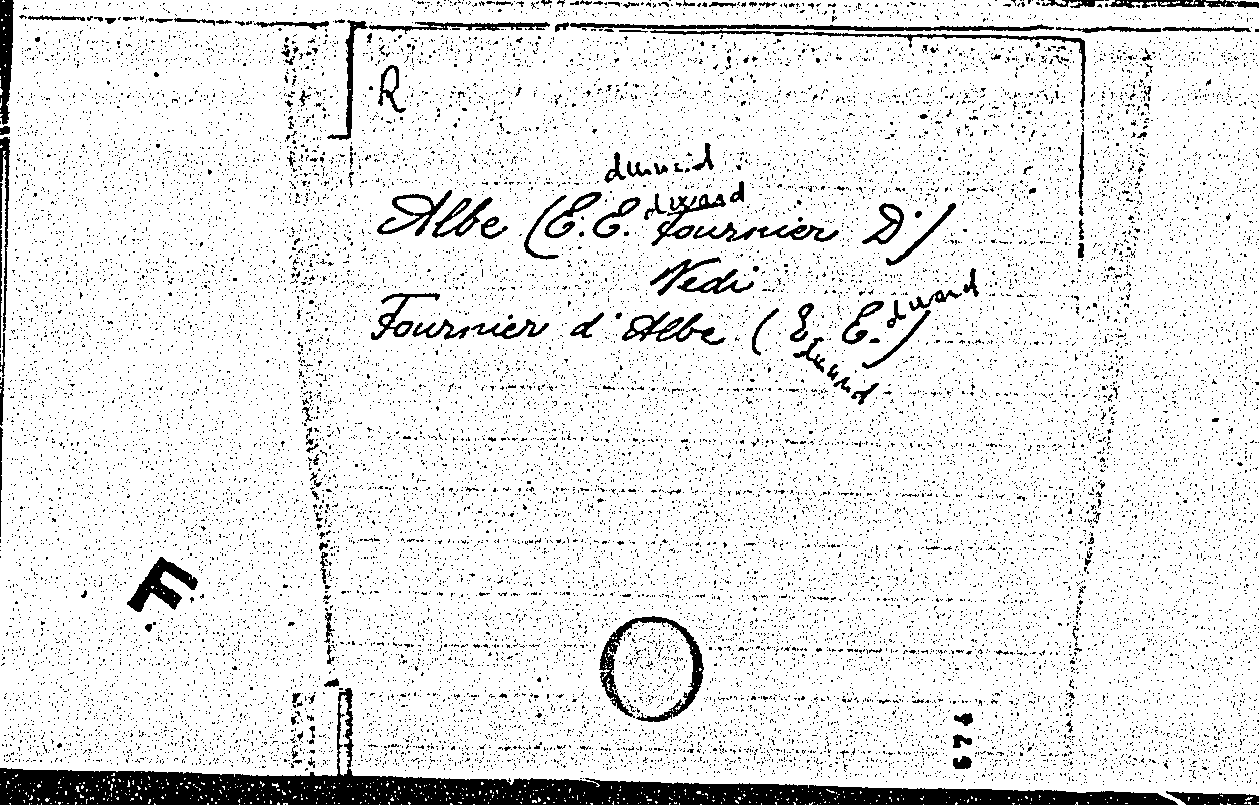 R
dmund
dward
Albe (E. E. Fournier D')
Vedi
Fournier d'Albe (E. E.)
dward
dmund
F